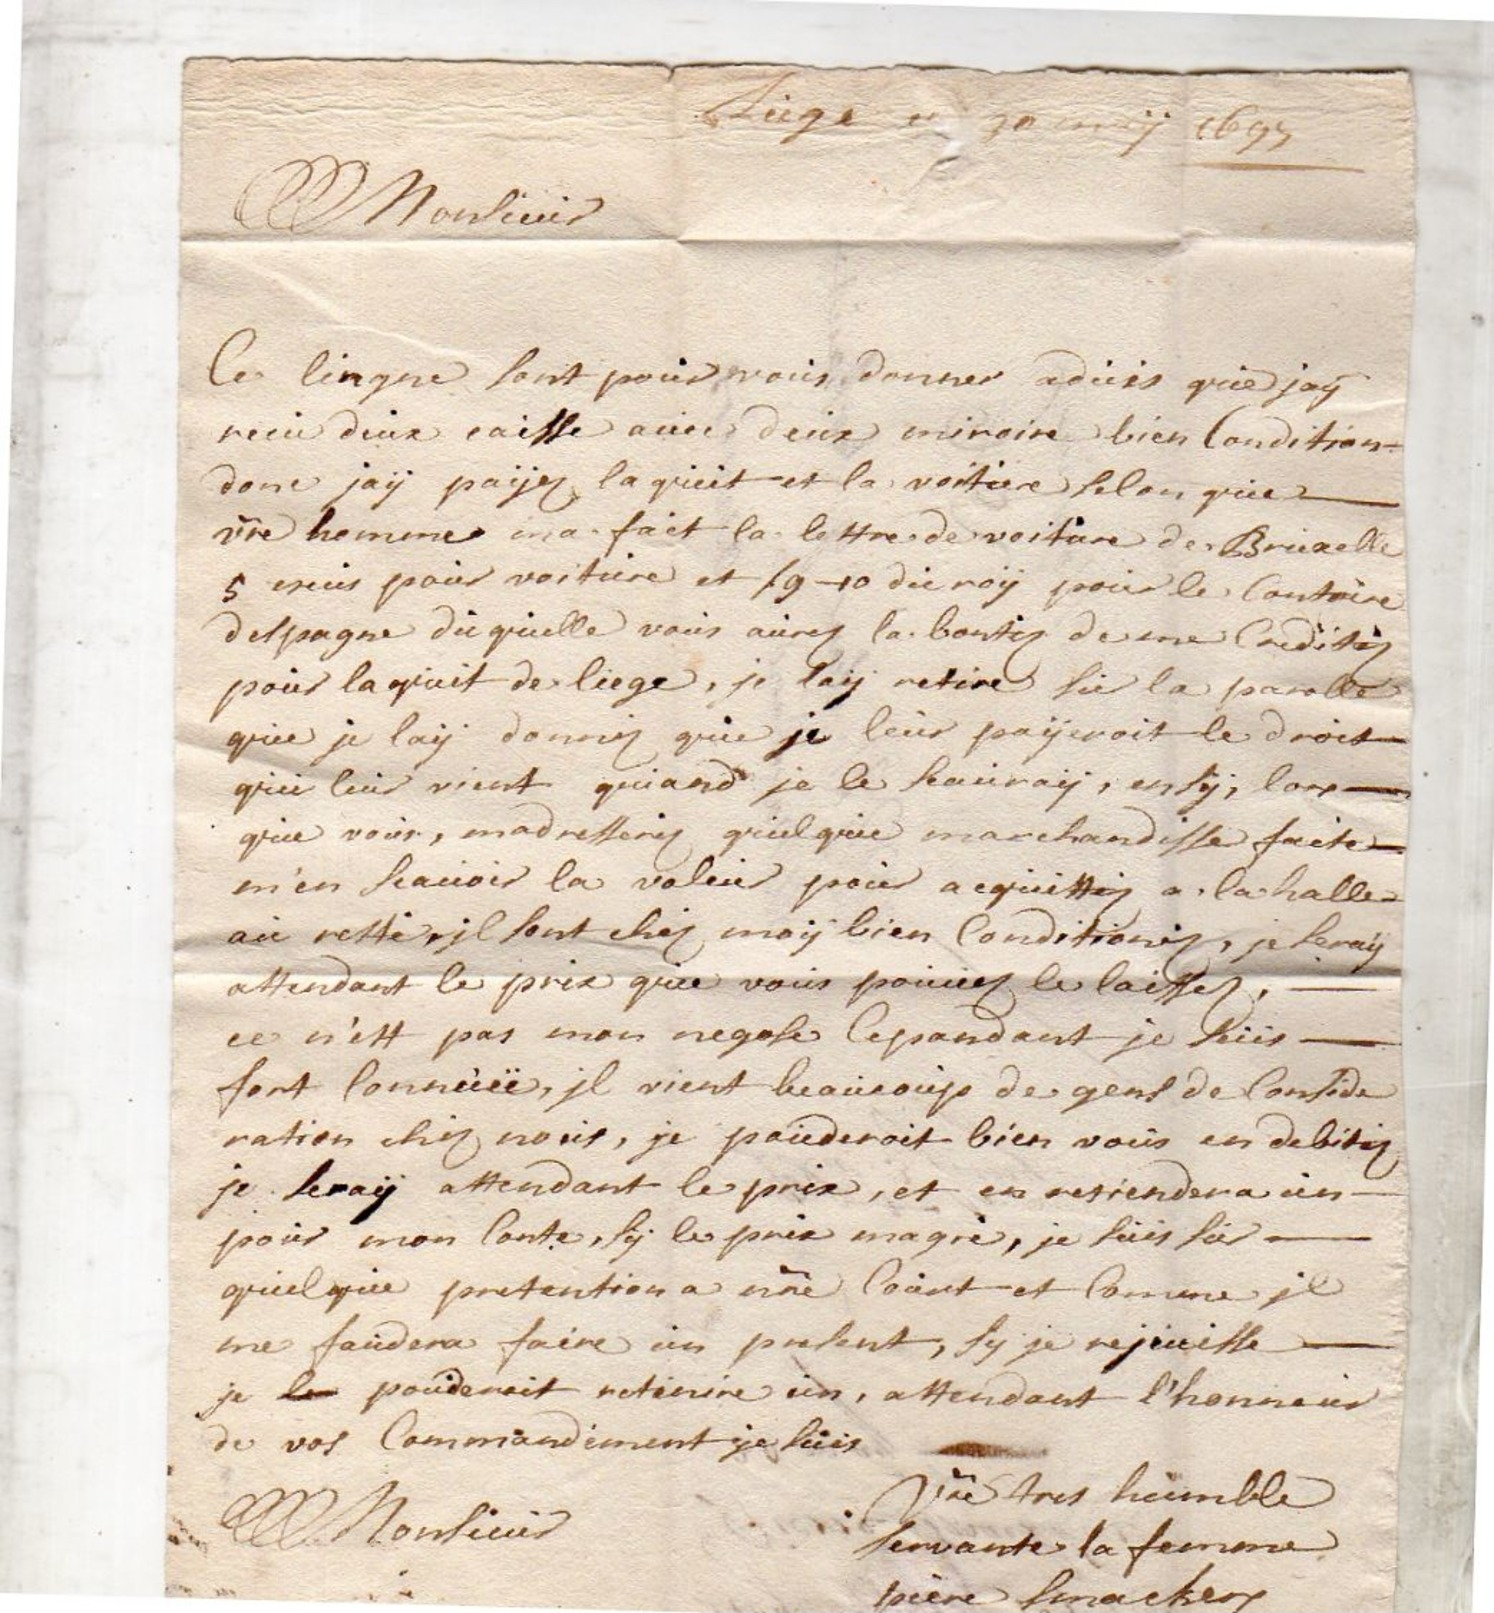 Liege 30 maÿ 1695
Monsieur
Ce lingne sont pour vous donner aduis que jaÿ
receu deux caisse auec deux miroire bien Condition-
donc jaÿ païjez laquit et la voiture selon que
vre homme ma fait la lettre de voiture de Bruxelle
5 escus pour voiture et du roÿ pour le Contoire
despagne du quelle vous aurez la bontez de me Creditez
pour laquit de liege, je laÿ retire sur la parolle
que je laÿ donnez que je leur paÿeroit le droit
qui leur vient quand je le scauraÿ, ensÿ, lors
que vous, madresserez quelque marchandisse faite
m'en scauoir la valeur pour acquittez a la halle
au reste, jl sont chez moÿ bien Conditionez, je seraÿ
attendant le prix que vous pouuez le laissez,
ce n'est pas mon negose Cepandant je suis
fort Connüe, jl vient beaucoup de gens de Conside
ration chez nous, je pouderoit bien vous en debitez
je seraÿ attendant le prix, et en retiendera un
pour mon Conte, sÿ le prix magré, je suis sur
quelque pretention a nre Court et Comme jl
me faudera faire un present, sy je rejouisse
je pouderoit retenire un, attendant l'honneur
de vos Commandement je suis
Monsieur
Vre tres humble
servante la femme
piere Smackers